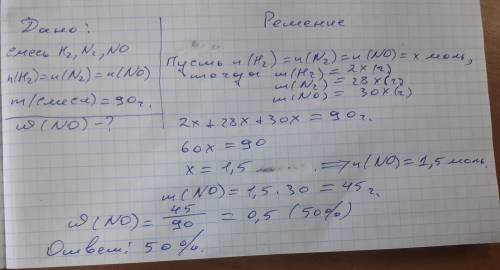 Дано:
смесь H₂, N₂, NO
n(H₂)=n(N₂)=n(NO)
m(смеси)=90г.
ω(NO)-?
Решение
Пусть n(H₂)=n(N₂)=n(NO)=x моль,
тогда m(H₂) = 2x(г)
m(N₂) = 28x(г)
m(NO) = 30x(г)
2x+28x+30x=90г.
60x=90
x=1,5 ⟹ n(NO)=1,5 моль.
m(NO)=1,5·30=45г.
ω(NO)=45/90=0,5 (50%)
Ответ: 50%.